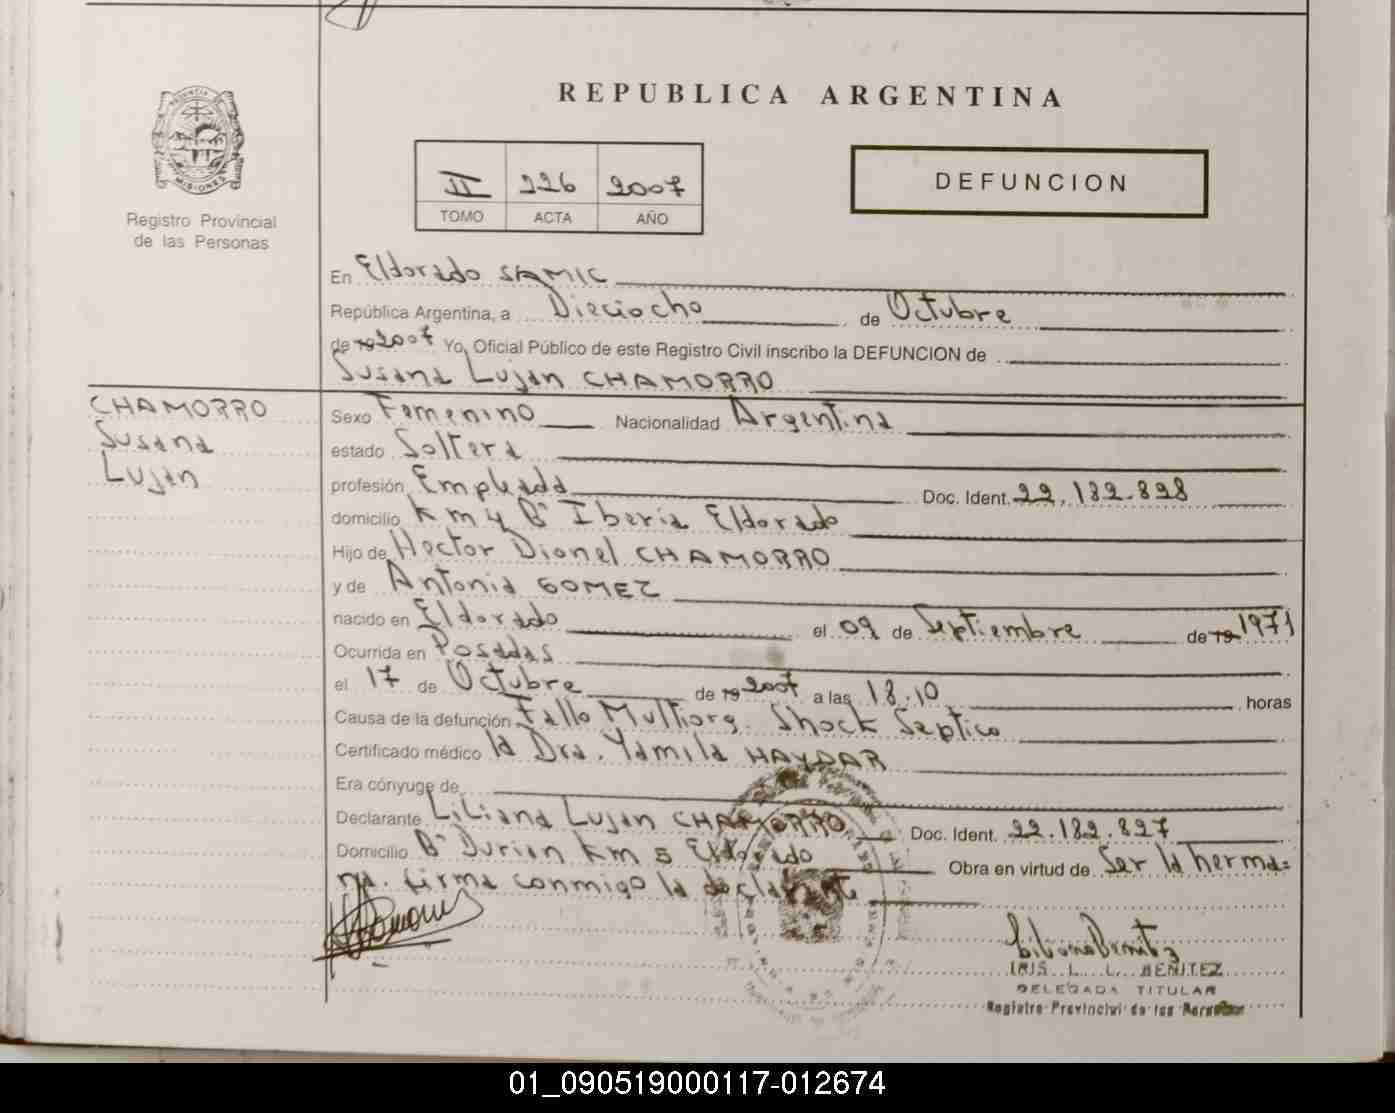 PROVINCIA DE
MISIONES
Registro Provincial
de las Personas
REPUBLICA ARGENTINA
II 226 2007
TOMO ACTA AÑO
DEFUNCION
En Eldorado SAMIC
República Argentina, a Dieciocho de Octubre
de 19 2007 Yo, Oficial Público de este Registro Civil inscribo la DEFUNCION de
Susana Lujan CHAMORRO
CHAMORRO
Susana
Lujan
Sexo Femenino Nacionalidad Argentina
estado Soltera
profesión Empleada Doc. Ident. 22.182.828
domicilio Km 4 Bº Iberia Eldorado
Hijo de Hector Dionel CHAMORRO
y de Antonia GOMEZ
nacido en Eldorado el 09 de Septiembre de 19 1971
Ocurrida en Posadas
el 17 de Octubre de 19 2007 a las 18.10 horas
Causa de la defunción Fallo Multiorg. Shock Septico
Certificado médico la Dra. Yamila HAYDAR
Era cónyuge de
Declarante Liliana Lujan CHAMORRO Doc. Ident. 22.182.827
Domicilio Bº Durian Km 5 Eldorado Obra en virtud de Ser la herma=
na. firma conmigo la declarante
IRIS L. L. BENITEZ
DELEGADA TITULAR
Registro Provincial de las Personas
01_090519000117-012674